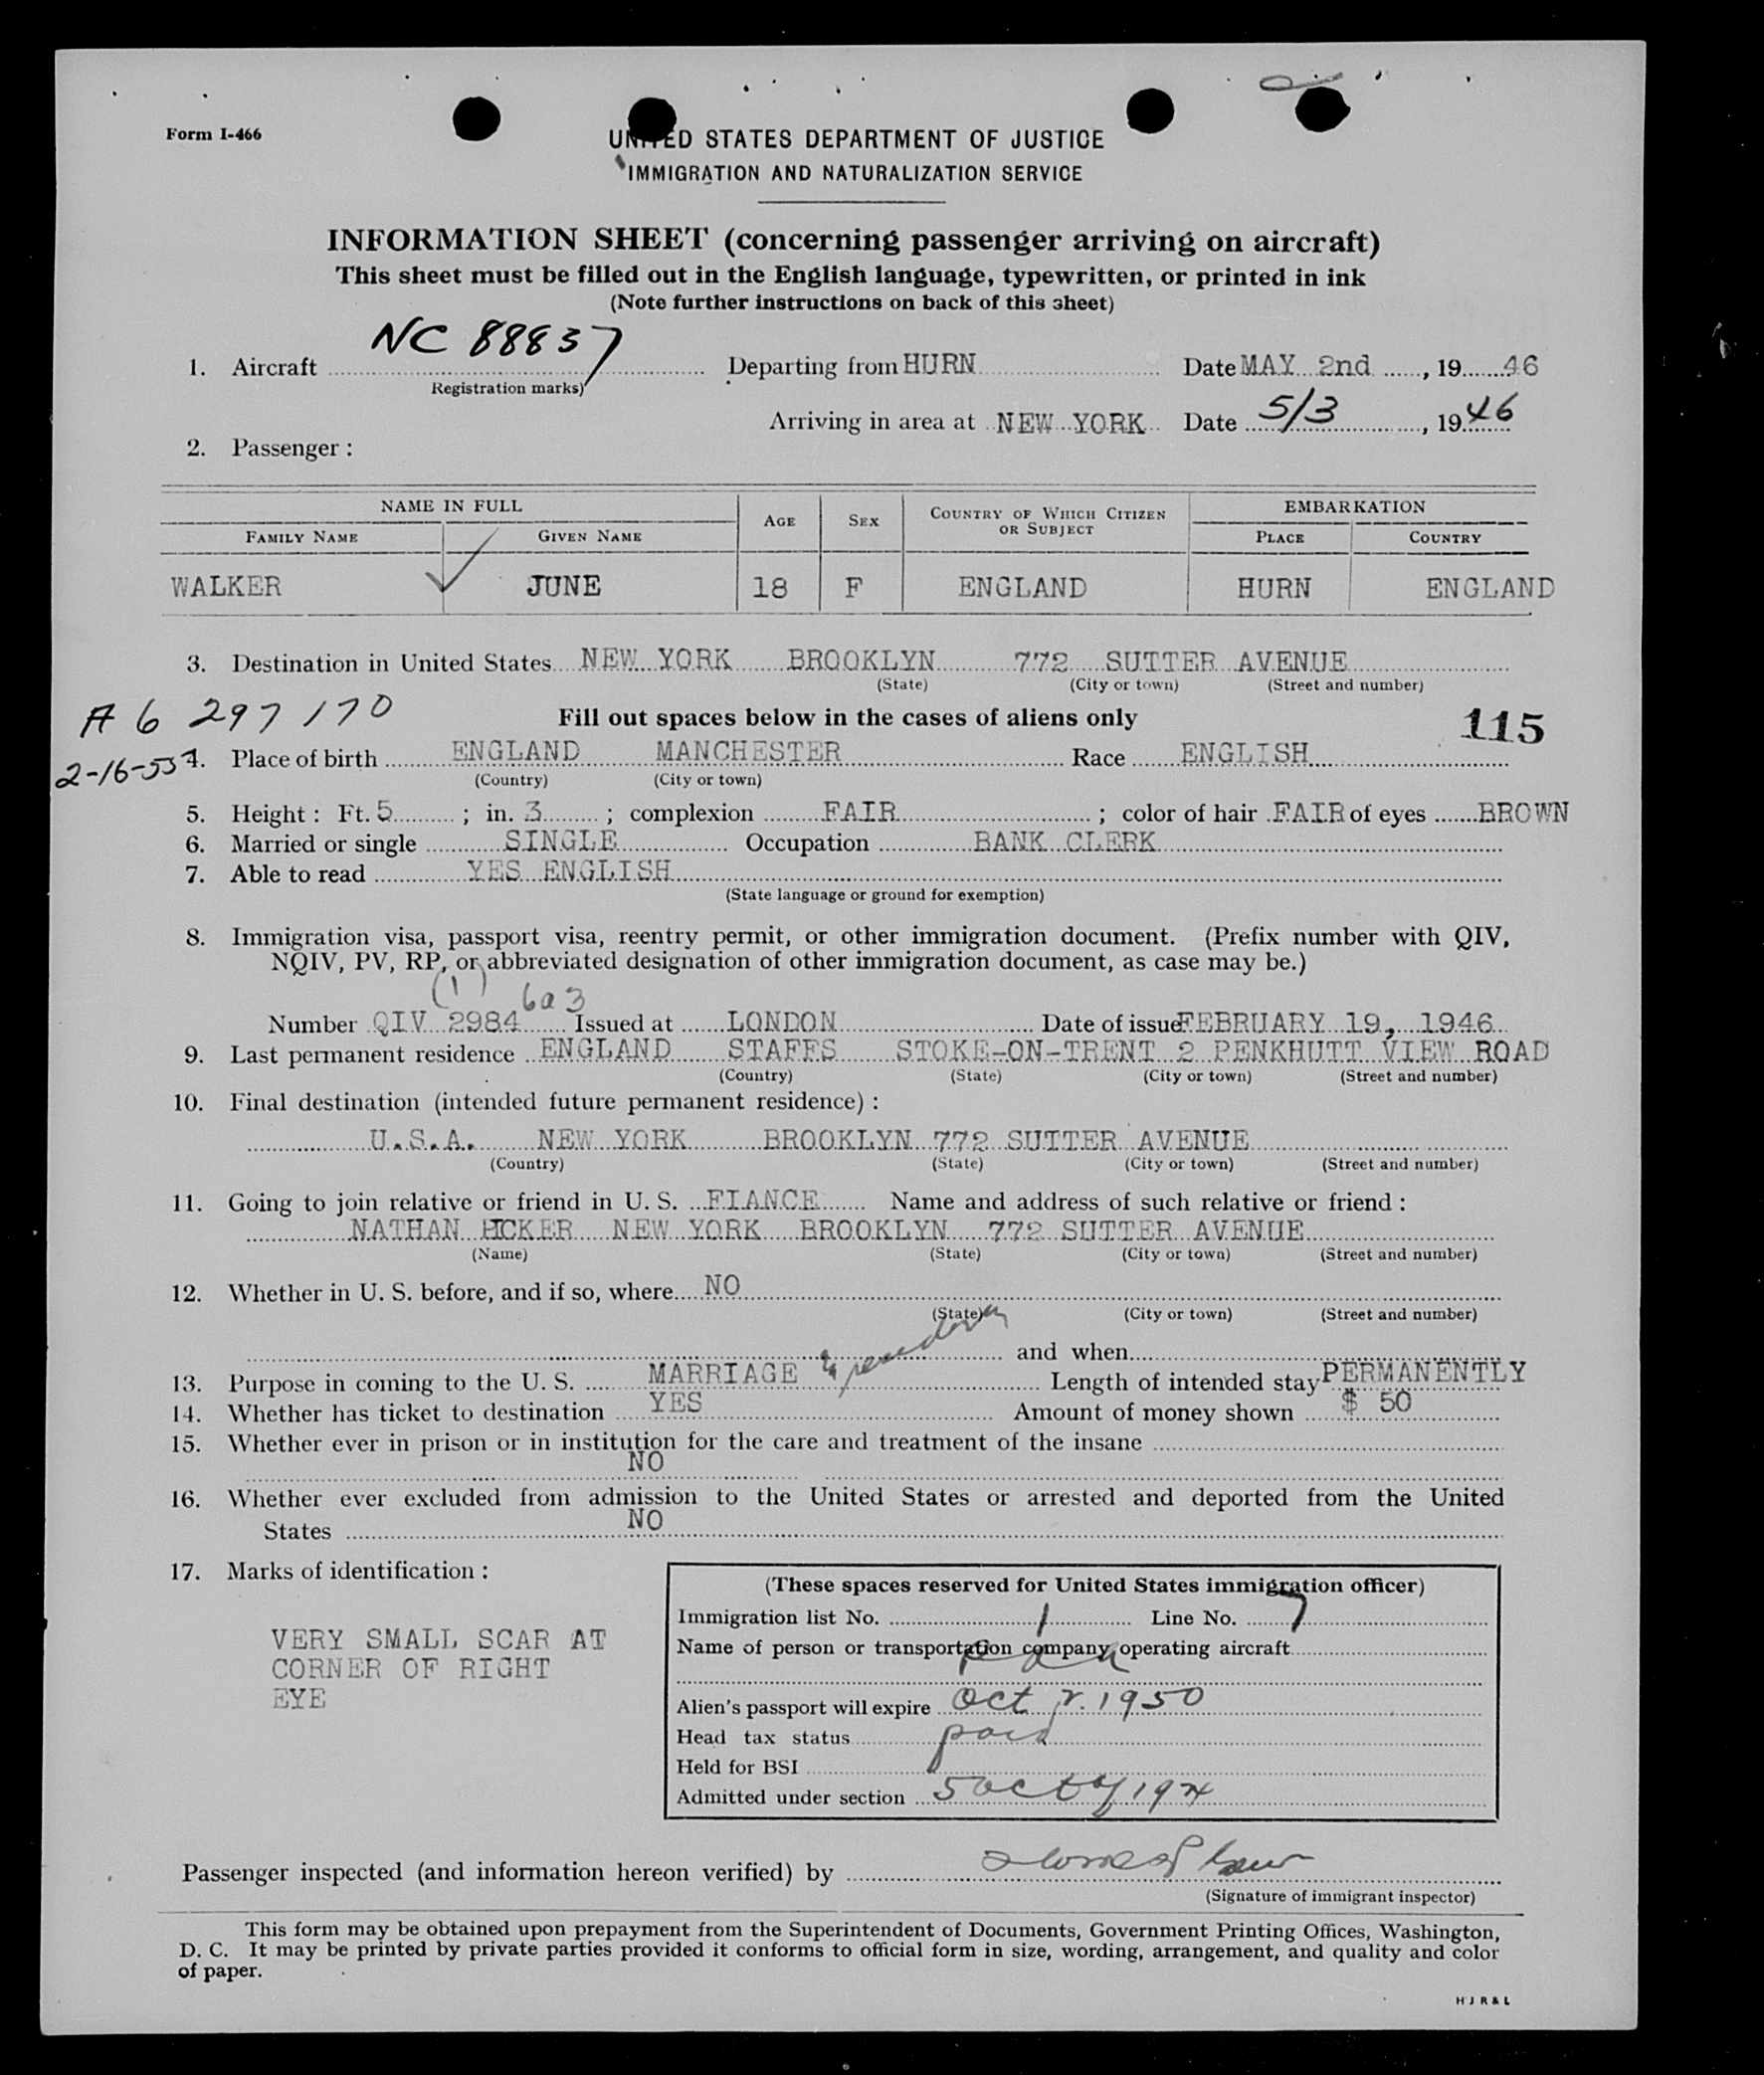 Form I-466
UNITED STATES DEPARTMENT OF JUSTICE
IMMIGRATION AND NATURALIZATION SERVICE
INFORMATION SHEET (concerning passenger arriving on aircraft)
This sheet must be filled out in the English language, typewritten, or printed in ink
(Note further instructions on back of this sheet)
1. Aircraft NC 88837 Departing from HURN Date MAY 2nd, 1946
Registration marks)
Arriving in area at NEW YORK Date 5/3, 1946
2. Passenger:
NAME IN FULL AGE SEX COUNTRY OF WHICH CITIZEN OR SUBJECT EMBARKATION
FAMILY NAME GIVEN NAME PLACE COUNTRY
WALKER JUNE 18 F ENGLAND HURN ENGLAND
3. Destination in United States NEW YORK BROOKLYN 772 SUTTER AVENUE
(State) (City or town) (Street and number)
A 6 297 170 Fill out spaces below in the cases of aliens only 115
2-16-55 4. Place of birth ENGLAND MANCHESTER Race ENGLISH
(Country) (City or town)
5. Height: Ft. 5; in. 3; complexion FAIR; color of hair FAIR of eyes BROWN
6. Married or single SINGLE Occupation BANK CLERK
7. Able to read YES ENGLISH
(State language or ground for exemption)
8. Immigration visa, passport visa, reentry permit, or other immigration document. (Prefix number with QIV,
NQIV, PV, RP, or abbreviated designation of other immigration document, as case may be.)
(1) 6a3
Number QIV 2984 Issued at LONDON Date of issue FEBRUARY 19, 1946
9. Last permanent residence ENGLAND STAFFS STOKE-ON-TRENT 2 PENKHUTT VIEW ROAD
(Country) (State) (City or town) (Street and number)
10. Final destination (intended future permanent residence):
U.S.A. NEW YORK BROOKLYN 772 SUTTER AVENUE
(Country) (State) (City or town) (Street and number)
11. Going to join relative or friend in U. S. FIANCE Name and address of such relative or friend:
NATHAN NEW YORK BROOKLYN 772 SUTTER AVENUE
(Name) (State) (City or town) (Street and number)
12. Whether in U. S. before, and if so, where NO
(State) (City or town) (Street and number)
and when
13. Purpose in coming to the U. S. MARRIAGE Length of intended stay PERMANENTLY
14. Whether has ticket to destination YES Amount of money shown $ 50
15. Whether ever in prison or in institution for the care and treatment of the insane
NO
16. Whether ever excluded from admission to the United States or arrested and deported from the United
States NO
17. Marks of identification:
VERY SMALL SCAR AT
CORNER OF RIGHT
EYE
(These spaces reserved for United States immigration officer)
Immigration list No. 1 Line No. 7
Name of person or transportation company operating aircraft
Alien's passport will expire Oct 2. 1950
Head tax status paid
Held for BSI
Admitted under section 5 act of 1924
Passenger inspected (and information hereon verified) by
(Signature of immigrant inspector)
This form may be obtained upon prepayment from the Superintendent of Documents, Government Printing Offices, Washington,
D. C. It may be printed by private parties provided it conforms to official form in size, wording, arrangement, and quality and color
of paper.
H J R & L